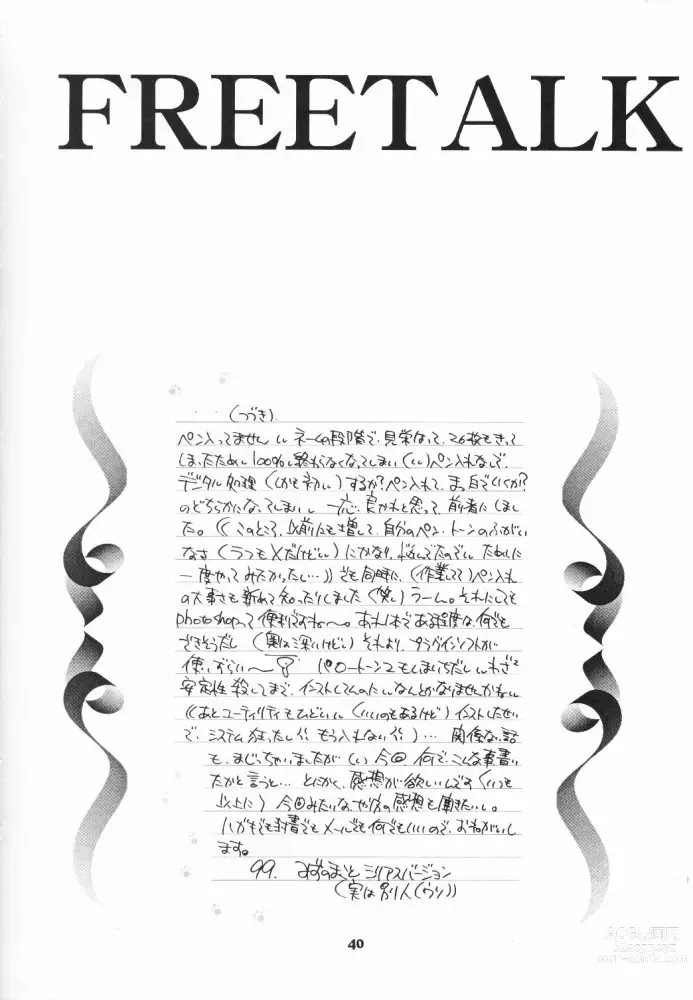 FREETALK
(つづき)
ペン入ってません ネームの段階で、見栄なって、26枚もきって
しまったため 100% 終わらなくなってしまい ペン入れなしで
デジタル処理(しかも初)するか?ペン入れて、まっ白でいくか?
のどちらかになってしまい 一応、良かれと思って 前者にしまし
た。((このところ、以前にも増して、自分のペン、トーンのふがい
なさ(うつもXだけど)にかなり、悩んでたので ためしに
一度やってみたかったし…))でも同時に、(作業してて)ペン入れ
の大事さも新めて知ったりしました(笑)うーん。それにしても
photoshopって便利ですね〜。あれ1本である程度な何でも
できそうだし(奥は深いけど)それより、プラグインソフトが
使いづらい〜
安定性殺してまで、インストしてんのに なんとかなりませんかね
((あとユーティリティもひどい(いいのもあるけど)インストしたせい
で、システム狂ったし もう入れない))… 関係ない話
も、まじっちゃいましたが 今回 何で、こんな事書い
たかと言うと… とにかく、感想が欲しいんです(いつも
以上に)今回みたいな、やり方の感想も聞きたいし。
ハガキでも封書でもメールでも何でもいいので、おねがいし
ます。
99. みずのまこと シリアスバージョン
(実は別人(ウソ))
40